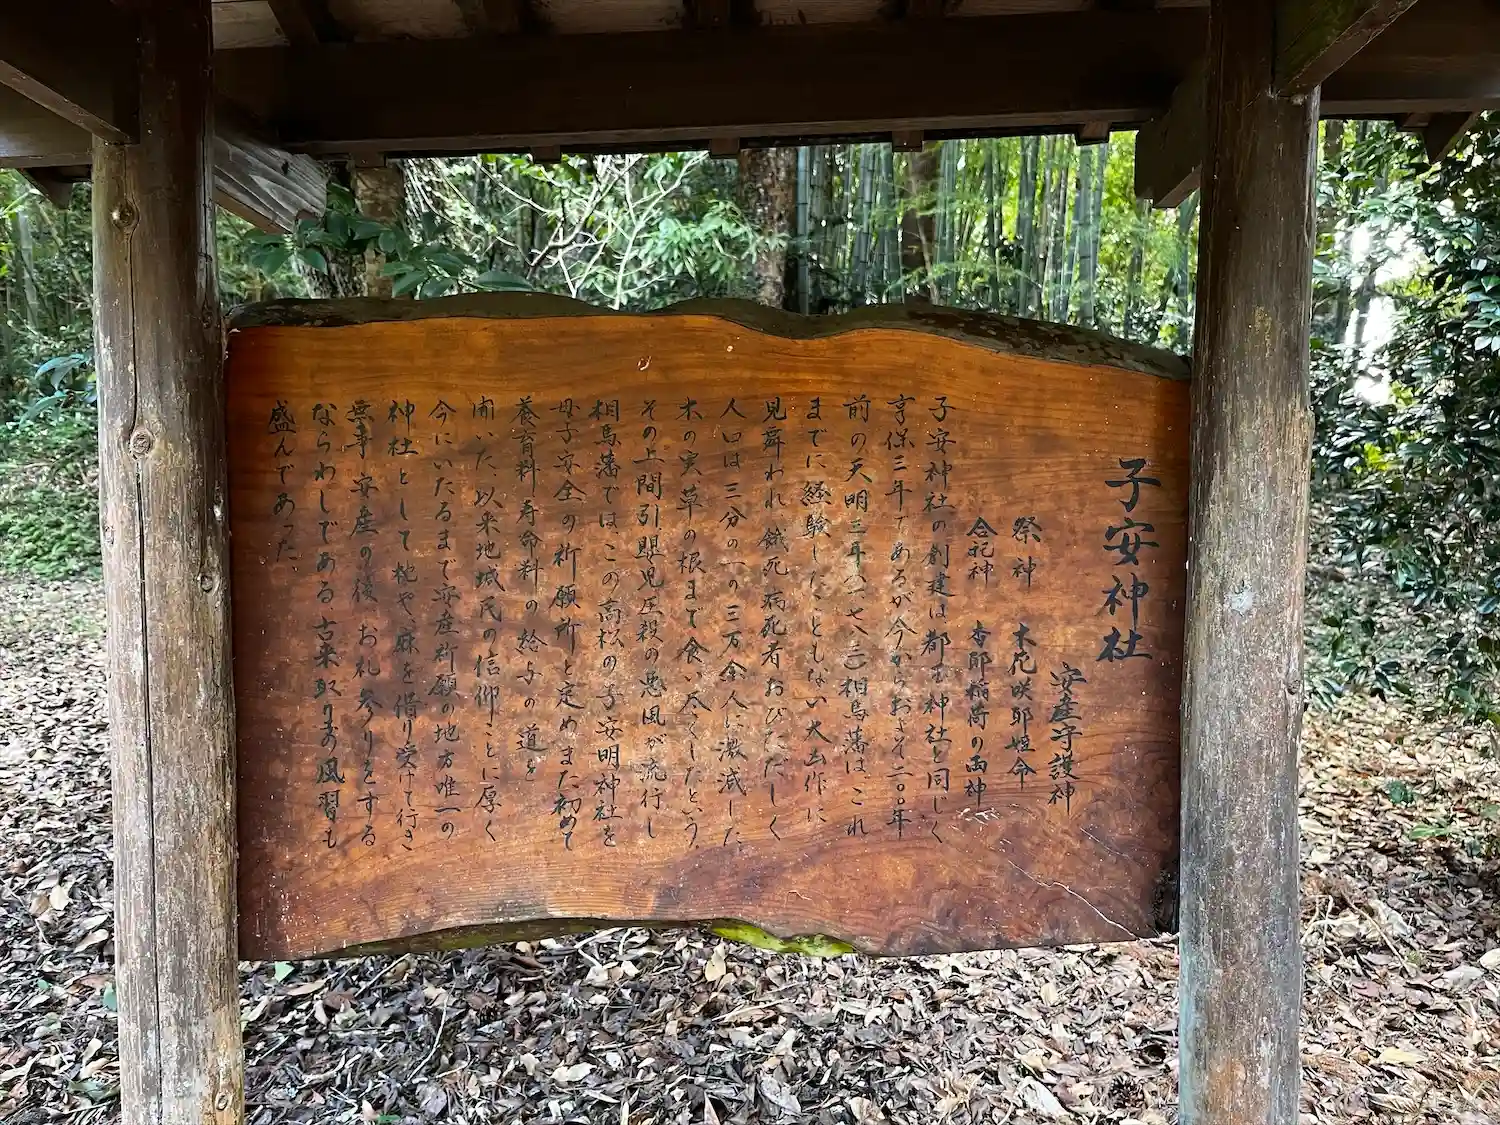 子安神社
安産守護神
祭神 木花咲耶姫命
合祀神 杏耶稲荷の両神
子安神社の創建は都玉神社と同じく
享保三年であるが今からおよそ二〇〇年
前の天明三年(一七八三)相馬藩は、これ
までに経験したこともない大凶作に
見舞われ 餓死 病死者おびただしく
人口は三分の一の三万余人に激減した
木の実、草の根まで食い尽くしたという
その上間引嬰児圧殺の悪風が流行し
相馬藩では、この高松の子安明神社を
母子安全の祈願所と定めまた初めて
養育料、寿命料の給与の道を
開いた、以来地域民の信仰ことに厚く
今にいたるまで安産祈願の地方唯一の
神社として枕や、麻を借り受けて行き
無事 安産の後、お礼参りをする
ならわしである 古来取り子の風習も
盛んであった